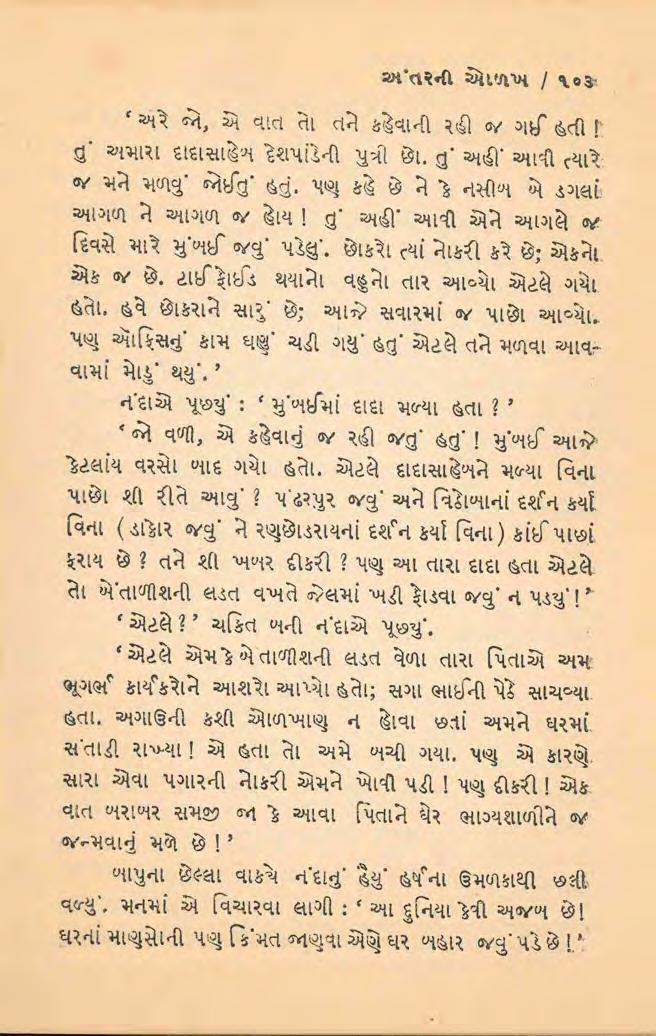 અંતરની ઓળખ / ૧૦૩
‘અરે જો, એ વાત તો તને કહેવાની રહી જ ગઈ હતી !
તું અમારા દાદાસાહેબ દેશપાંડેની પુત્રી છો. તું અહીં આવી ત્યારે
જ મને મળવું જોઈતું હતું. પણ કહે છે ને કે નસીબ બે ડગલાં
આગળ ને આગળ જ હોય ! તું અહીં આવી એને આગલે જ
દિવસે મારે મુંબઈ જવું પડેલું. છોકરો ત્યાં નોકરી કરે છે; એકનો
એક જ છે. ટાઈફોઈડ થયાનો વહુનો તાર આવ્યો એટલે ગયો
હતો. હવે છોકરાને સારું છે; આજે સવારમાં જ પાછો આવ્યો.
પણ ઑફિસનું કામ ઘણું ચડી ગયું હતું એટલે તને મળવા આવ-
વામાં મોડું થયું.’
નંદાએ પૂછયું : ‘મુંબઈમાં દાદા મળ્યા હતા ?’
‘જો વળી, એ કહેવાનું જ રહી જતું હતું ! મુંબઈ આજે
કેટલાંય વરસો બાદ ગયો હતો. એટલે દાદાસાહેબને મળ્યા વિના
પાછો શી રીતે આવું ? પંઢરપુર જવું અને વિઠોબાનાં દર્શન કર્યા
વિના (ડાકોર જવું ને રણછોડરાયનાં દર્શન કર્યા વિના) કાંઈ પાછાં
ફરાય છે ? તને શી ખબર દીકરી ? પણ આ તારા દાદા હતા એટલે
તો બેંતાળીશની લડત વખતે જેલમાં ખડી ફોડવા જવું ન પડયું !’
‘એટલે ?’ ચકિત બની નંદાએ પૂછયું.
‘એટલે એમ કે બેતાળીશની લડત વેળા તારા પિતાએ અમ
ભૂગર્ભ કાર્યકરોને આશરો આપ્યો હતો; સગા ભાઈની પેઠે સાચવ્યા
હતા. અગાઉની કશી ઓળખાણ ન હોવા છતાં અમને ઘરમાં
સંતાડી રાખ્યા ! એ હતા તો અમે બચી ગયા. પણ એ કારણે
સારા એવા પગારની નોકરી એમને ખોવી પડી ! પણ દીકરી ! એક
વાત બરાબર સમજી જા કે આવા પિતાને ઘેર ભાગ્યશાળીને જ
જન્મવાનું મળે છે !’
બાપુના છેલ્લા વાકયે નંદાનું હૈયું હર્ષના ઉમળકાથી છલી
વળ્યું. મનમાં એ વિચારવા લાગી : ‘આ દુનિયા કેવી અજબ છે!
ઘરનાં માણસોની પણ કિંમત જાણવા એણે ઘર બહાર જવું પડે છે !’